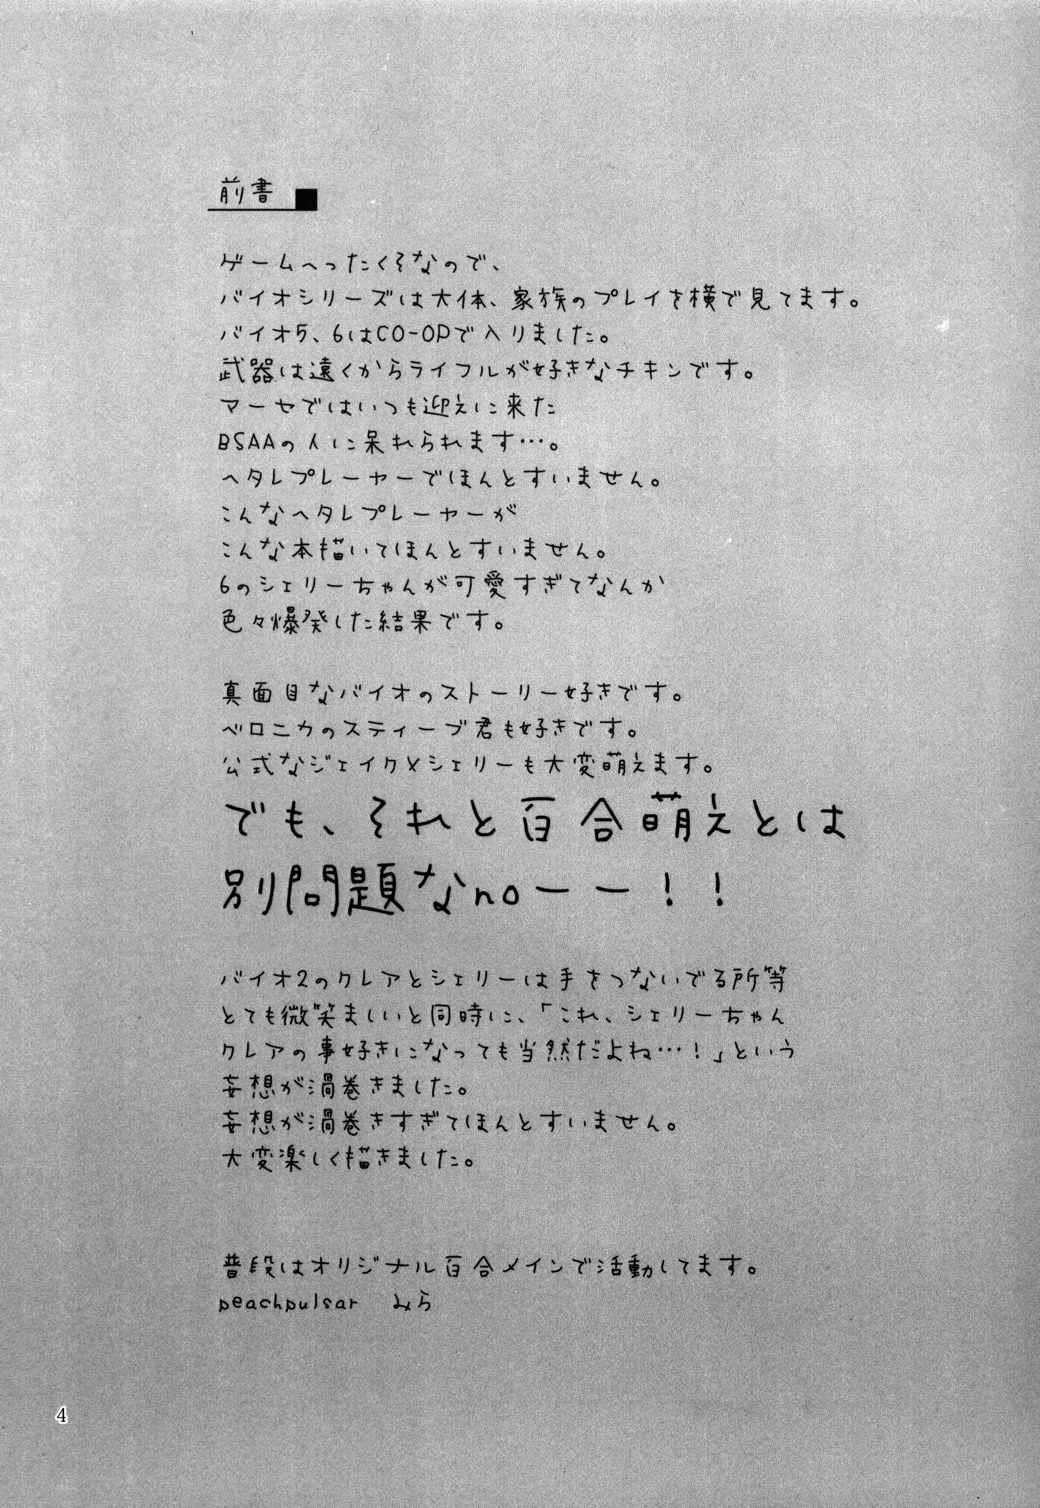 前書
ゲームへったくそなので、
バイオシリーズは大体、家族のプレイを横で見てます。
バイオ5、6はCO-OPで入りました。
武器は遠くからライフルが好きなチキンです。
マーセではいつも迎えに来た
BSAAの人に呆れられます…。
ヘタレプレーヤーでほんとすいません。
こんなヘタレプレーヤーが
こんな本描いてほんとすいません。
6のシェリーちゃんが可愛すぎてなんか
色々爆発した結果です。
真面目なバイオのストーリー好きです。
ベロニカのスティーブ君も好きです。
公式なジェイク×シェリーも大変萌えます。
でも、それと百合萌えとは
別問題なnoーー！！
バイオ2のクレアとシェリーは手をつないでる所等
とても微笑ましいと同時に、「これ、シェリーちゃん
クレアの事好きになっても当然だよね…！」という
妄想が渦巻きました。
妄想が渦巻きすぎてほんとすいません。
大変楽しく描きました。
普段はオリジナル百合メインで活動してます。
peachpulsar　みら
4